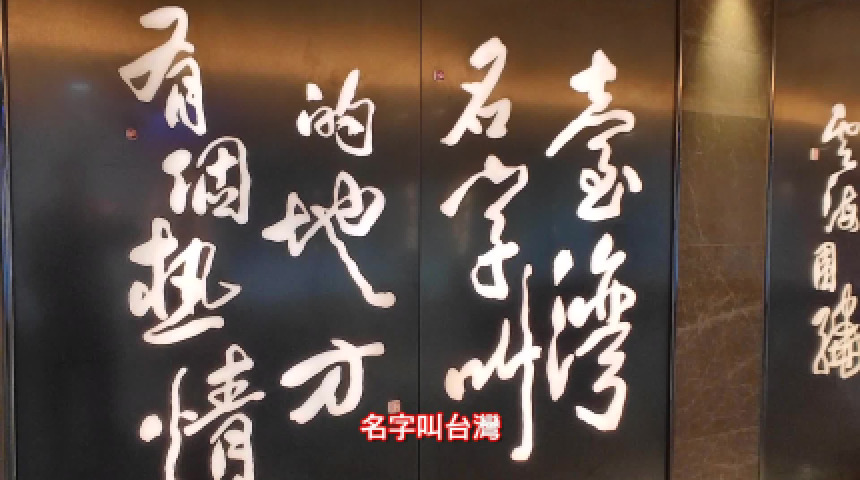 有個熱情
的地方
名字叫
臺灣
雲海
名字叫台灣